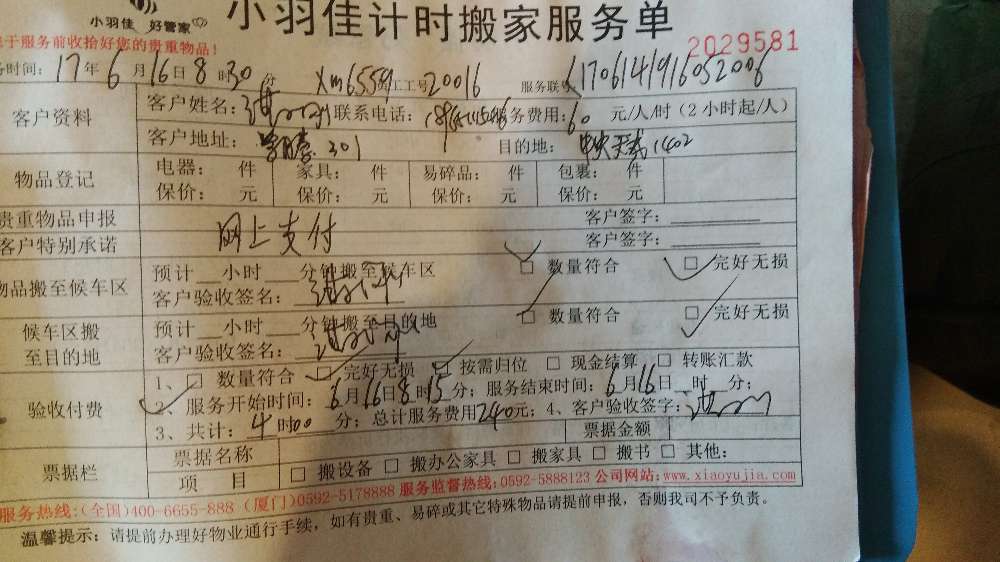 小羽佳 好管家
小羽佳计时搬家服务单
于服务前收拾好您的贵重物品！
2029581
务时间：17年6月16日8时30分 Xm6559 工工号20016 服务联
客户资料
客户姓名： 联系电话： 服务费用：60 元/人/时（2小时起/人）
客户地址： 301 目的地： 1402
物品登记
电器： 件 家具： 件 易碎品： 件 包裹： 件
保价： 元 保价： 元 保价： 元 保价： 元
贵重物品申报 客户签字：
网上支付
客户特别承诺 客户签字：
物品搬至候车区
预计__小时__分钟搬至候车区 □ 数量符合 □ 完好无损
客户验收签名：
候车区搬
至目的地
预计__小时__分钟搬至目的地 □ 数量符合 □ 完好无损
客户验收签名：
验收付费
1、□ 数量符合 □ 完好无损 □ 按需归位 □ 现金结算 □ 转账汇款
2、服务开始时间：6月16日8时15分；服务结束时间：6月16日__时__分；
3、共计：4时00分；总计服务费用240元；4、客户验收签字：
票据栏
票据名称 票据金额
项 目 □ 搬设备 □ 搬办公家具 □ 搬家具 □ 搬书 □ 其他：
服务热线：(全国)400-6655-888 (厦门)0592-5178888 服务监督热线：0592-5888123 公司网站：www.xiaoyujia.com
温馨提示：请提前办理好物业通行手续，如有贵重、易碎或其它特殊物品请提前申报，否则我司不予负责。